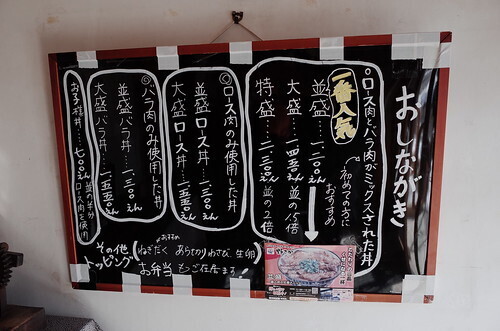 おしながき
○ロース肉とバラ肉がミックスされた丼
一番人気
初めての方におすすめ
並盛……一、一〇〇えん
大盛……一、四五〇えん 並の1.5倍
特盛……二、二三〇えん 並の2倍
◎ロース肉のみ使用した丼
並盛ロース丼……一、三〇〇えん
大盛ロース丼……一、五五〇えん
◎バラ肉のみ使用した丼
並盛バラ丼……一、三〇〇えん
大盛バラ丼……一、五五〇えん
お子様丼……七〇〇えん 並の半分 ロース肉を使用
その他トッピング
(ねぎだく あらさがり わさび 生卵)
お弁当もございます!